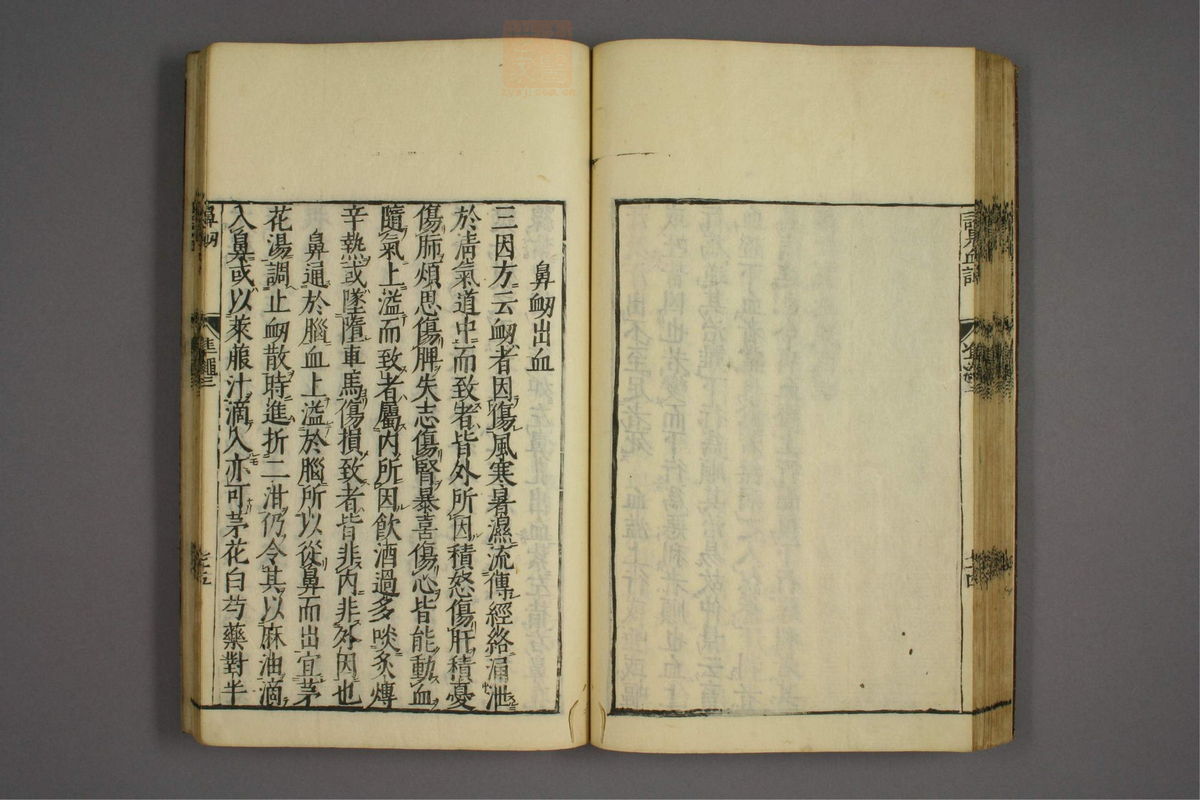 鼻衂出血
三因方云衂者因傷風寒暑濕流傳經絡涌泄
於清氣道中而致者皆外所因積怒傷肝積憂
傷肺煩思傷脾失志傷腎暴喜傷心皆能動血
隨氣上溢而致者屬内所因飲酒過多啖炙煿
辛熱或墜墮車馬傷損致者皆非内非外因也
鼻通於腦血上溢於腦所以從鼻而出宜茅
花湯調止衂散時進折二泔仍令其以麻油滴
入鼻或以萊菔汁滴入亦可茅花白芍藥對半
鼻衂
準繩三
七十五
諸見血證
七十四